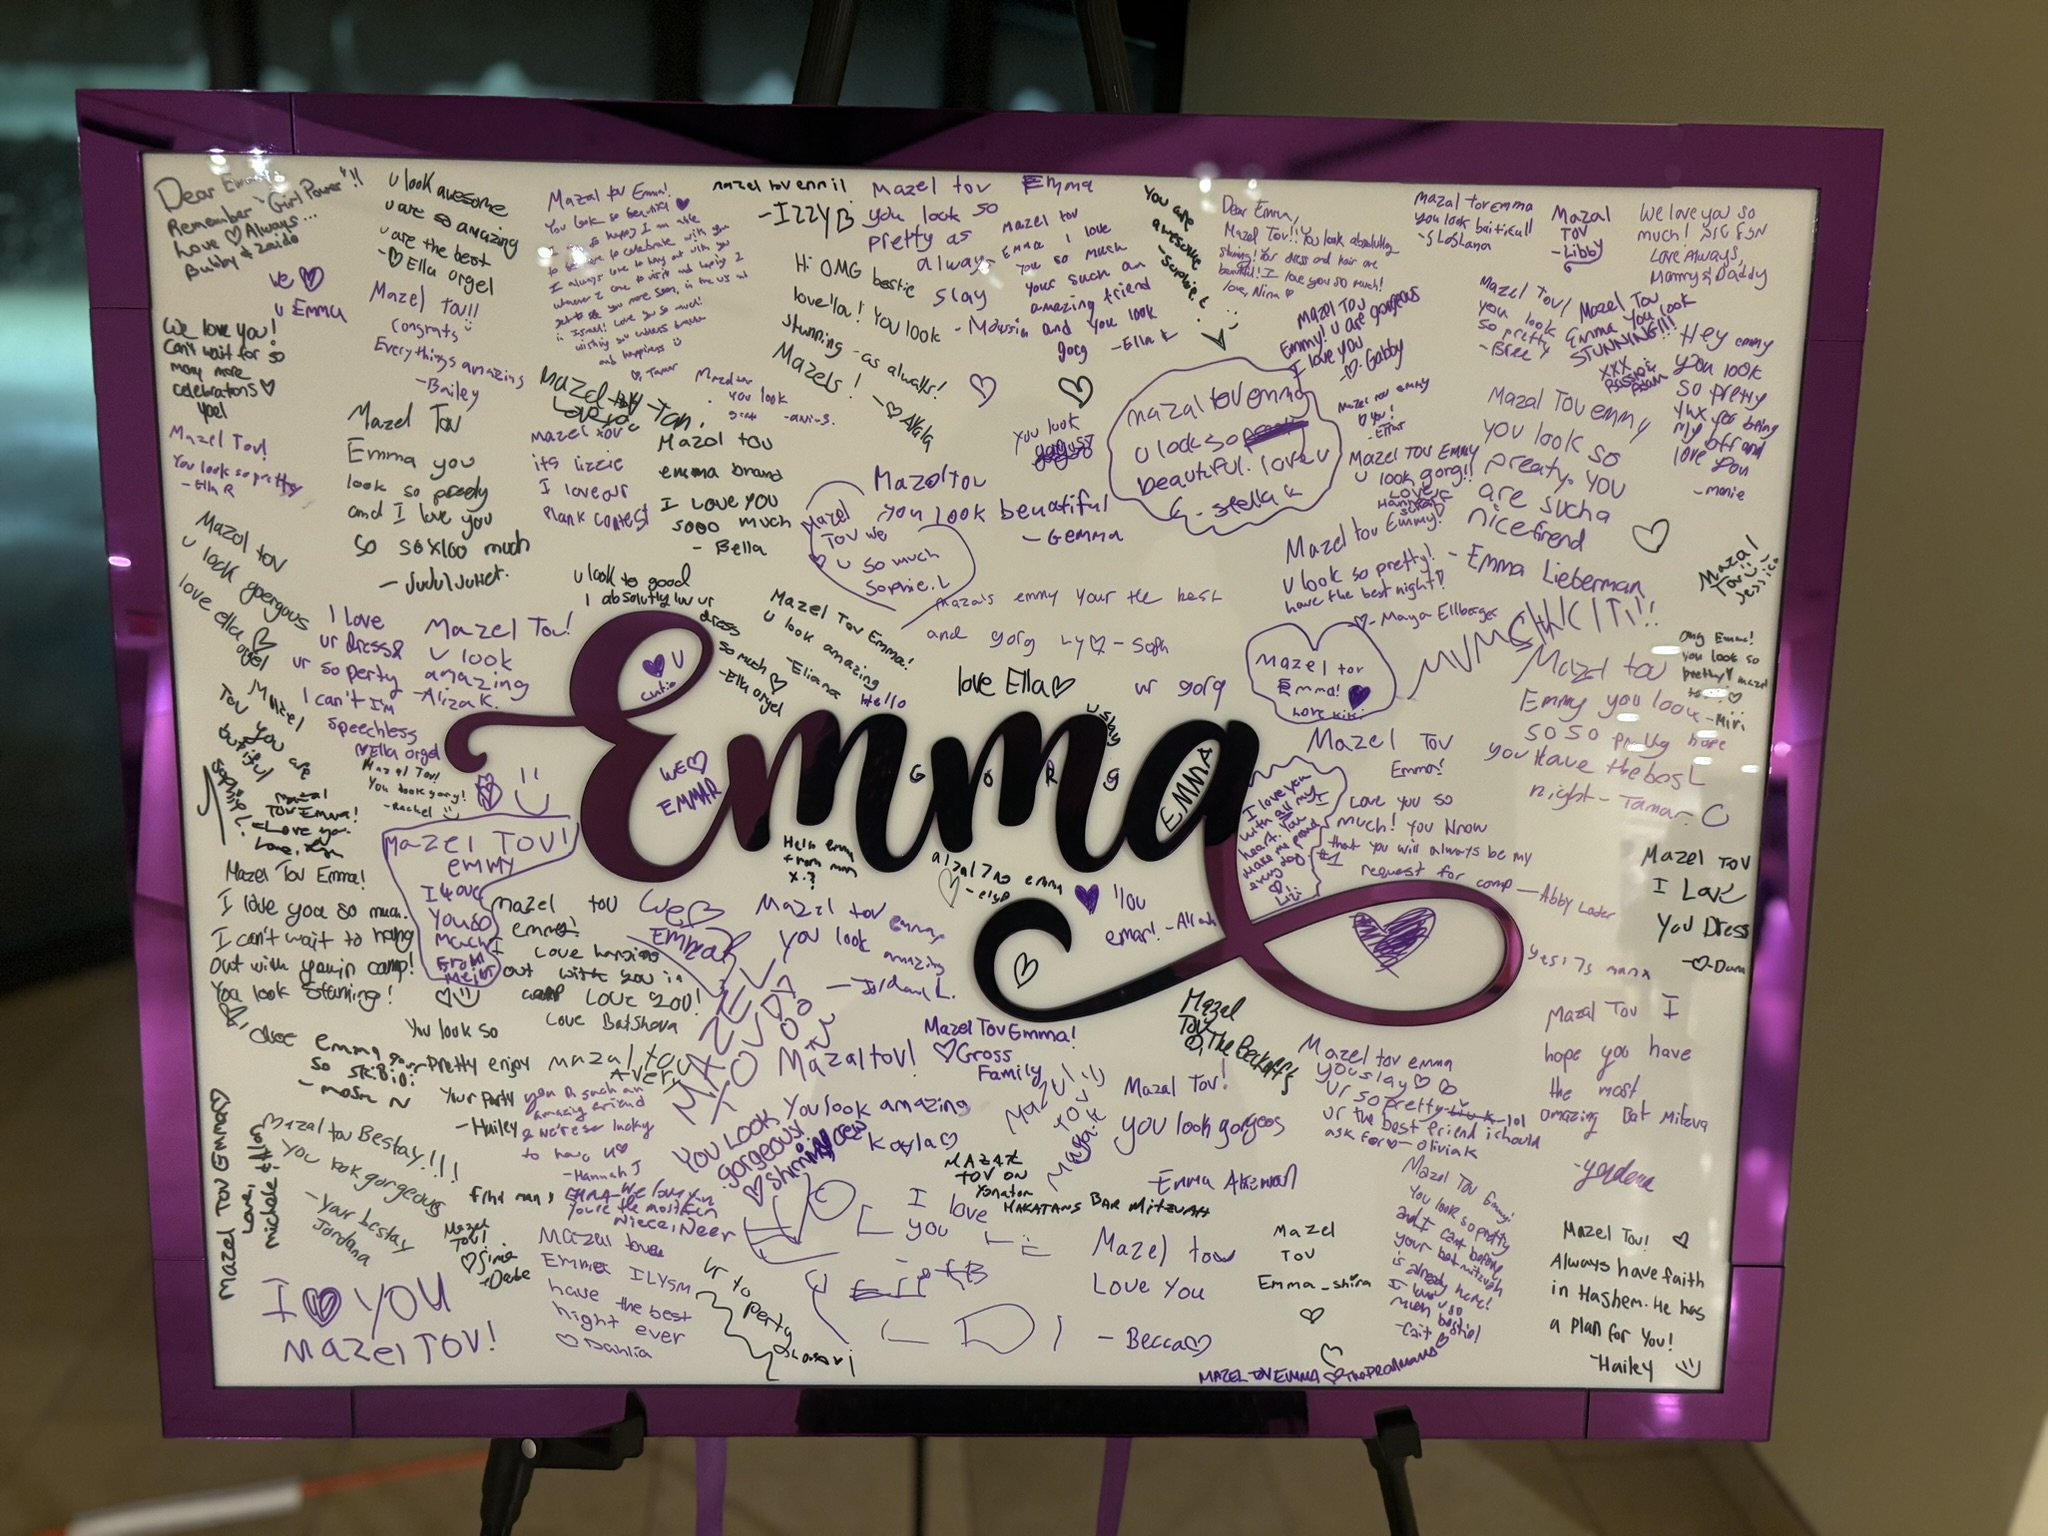 Dear Emma,
Remember "Girl Power"!!
Love ♡ Always...
Bubby & Zaido
we ♡
u Emma
We love you!
Can't wait for so
many more
celebrations ♡
Yael
Mazel Tov!
You look so pretty
- Ella R
Mazal tov
u look goergous
love ella orgel
u look awesome
u are so amazing
u are the best
- ♡ Ella orgel
Mazel tov!!
Congrats
Everythings amazing
- Bailey
Mazel Tov
Emma you
look so preedy
and I love you
so soX100 much
- Juju/Juliet.
I love
ur dress &
ur so perty
I can't I'm
speechless
♡ Ella orgel
Mazel Tov!
u look
amazing
- Aliza K.
Mazel
Tov you
are
Mazel Tov!
You look gorg!
- Rachel
Mazal
Tov Emma!
Love you
Mazel Tov Emma!
I love you so much.
I can't wait to hang
out with you in camp!
You look stunning!
Mazel Tov!
emmy
I love
you so
much
from
Mazal tov Emma!
You look so beautiful ♡
I am so happy I am able
to be here to celebrate with you
I always love to hang out with you
whenever I come to visit and hoping I
get to see you more soon, in the US or
in Israel! Love you so much!
and happiness
♡, Tamar
Mazel Tov
mazel tov
its lizzie
I love our
plank contest
Mazal tov
You look
great
mazel tov
- Izzy B
Hi OMG bestie
love'lla! You look
stunning - as alwalls!
Mazels!
- ♡ Ayala
Mazol tov
emma brand
I Love you
sooo much
- Bella
Mazel tov Emma
you look so
pretty as
always
slay
mazel tov
Emma I love
you so much
your such an
amazing friend
and you look
gorg
- Ella K
You are
awesome
- Sophie
You look
Mazol tov
you look beautiful
- Gemma
Mazel
Tov we
♡ u so much
Sophie.L
u look to good
I absolutly luv ur
dress
so much ♡
- Ella orgel
Mazel Tov Emma!
u look amazing
- Eliana
Hello
mazals emmy your the best
and gorg ly♡ - Soph
love Ella♡
ur gorg
Dear Emma,
Mazel Tov!! You look absolutley
stuning! Your dress and hair are
beautiful! I love you so much!
love, Nina ♡
Mazel Tov
Emmy! u are gorgeous
I love you
- ♡. Gabby
mazal tov emma
u look so
beautiful. love u
- Stella K
Mazel Tov emmy
♡ you!
- Efrat
Mazel Tov Emmy
u look gorg!!
Love,
Hannah
Mazel tov Emmy!
u look so pretty!
have the best night!
♡ - Maya Ellberger
mazal tov emma
you look baitifull
- Sloshana
Mazal
Tov
- Libby
We love you so
much!
Love Always,
Mommy & Daddy
Mazel Tov!
you look
so pretty
- Bree
Mazel Tov
Emma You look
STUNNING!!!
xxx
Hey emmy
you look
so pretty
thx for being
my bff and
love you
Mazal Tov emmy
you look so
preaty. you
are sucha
nice friend
- Emma Lieberman
♡
Mazal
Tov
Jessica
omg Emma!
you look so
pretty! mazel
tov ♡
- Miri
Mazel tov
Emmy you look
so so pretty hope
you Have the best
night - Tamar. C
Mazel tov
Emma!
Love Kiki
♡ u
cutie
WE ♡
EMMAR
Emma
EMMA
G O R G
u slay
Mazel Tov
Emma!
I love you so
much! You know
that you will always be my
#1 request for camp - Abby Lader
I love you
with all my
heart. You
make me proud
every day
♡
Lili
Hello emma
from mom
x.?
You
emar!
Mazel Tov
I Love
You Dress
- ♡ - Dana
Mazal Tov I
hope you have
the most
amazing Bat Mitzva
- yordana
mazel tov
emma!
I love hanging
out with you in
camp Love you!
Love Batsheva
We ♡
Emmar
Mazal tov emmy
you look amazing
- Jordana L.
MAZEL TOV
XOXO
Mazel Tov Emma!
♡ Gross
Family
Mazel
Tov
The Beckoffs
Mazel tov emma
you slay ♡ ♡
ur so pretty lol
ur the best friend i chould
ask for ♡ - olivia K
emma
so skibidi
You look so
pretty enjoy
Your party
- Hailey
mazal tov
Avery
you r such an
amazing friend
& we're so lucky
to have u♡
- Hannah J
Mazal tov!
you look amazing
Kayla♡
YOU LOOK
gorgeous!
Mazal Tov!
you look gorgeos
- Emma Akerman
MAZAL
TOV ON
Yonatan
MAKATANS BAR MITZVAH
MAZEL TOV EMMA♡
Love,
Mazal tov Bestay!!!
you look gorgeous
- your bestay
Jordana
find man,
Mazel
Tov!
I ♡ YOU
MAZEL TOV!
EMMA - We love you
You're the most fun
niece,
Mazel tov
Emma ILYSM
have the best
night ever
♡ Dahlia
ur so
perty
I love
you
Mazel tov
Love You
- Becca♡
Mazel
Tov
Emma_shira
♡
Mazel Tov Emmy!
You look so pretty
and I cant believe
your bat mitzvah
is already here!
I love u so
much bestie!
- Cait ♡
MAZEL TOV EMMA
Mazel Tov! ♡
Always have faith
in Hashem. He has
a plan for you!
- Hailey